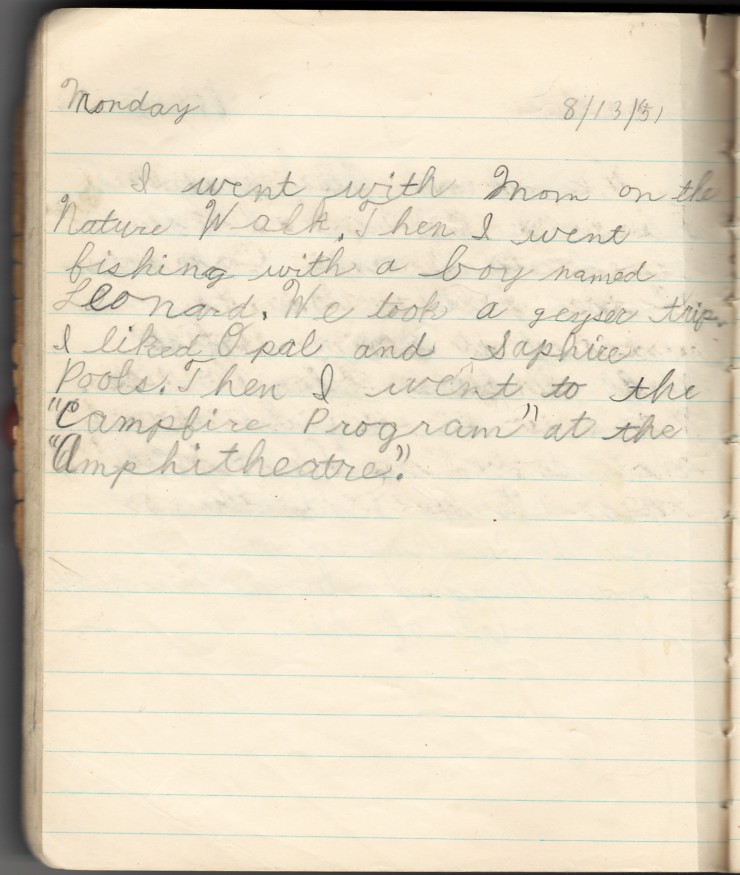 Monday 8/13/51
I went with Mom on the
Nature Walk. Then I went
fishing with a boy named
Leonard. We took a geyser trip.
I liked Opal and Saphire
Pools. Then I went to the
"Campfire Program" at the
"Amphitheatre".